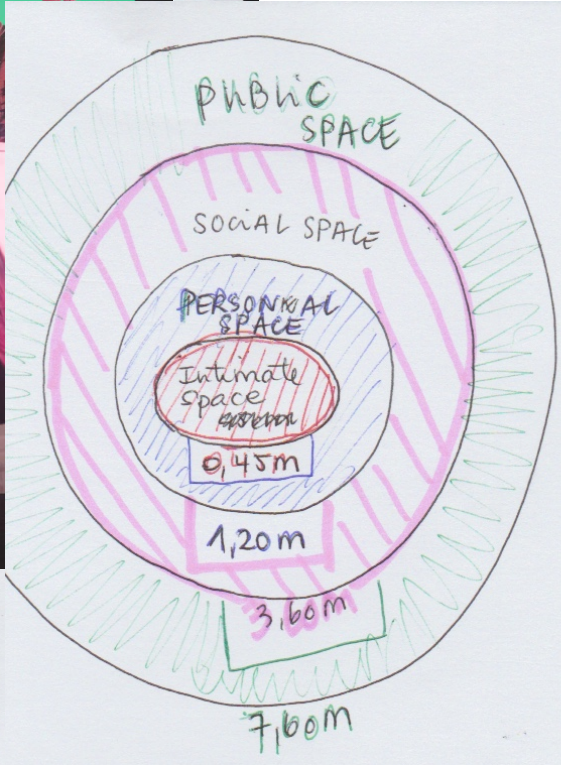 PUBLIC
SPACE
SOCIAL SPACE
PERSONNAL
SPACE
Intimate
Space
0,45m
1,20m
3,60m
7,60m